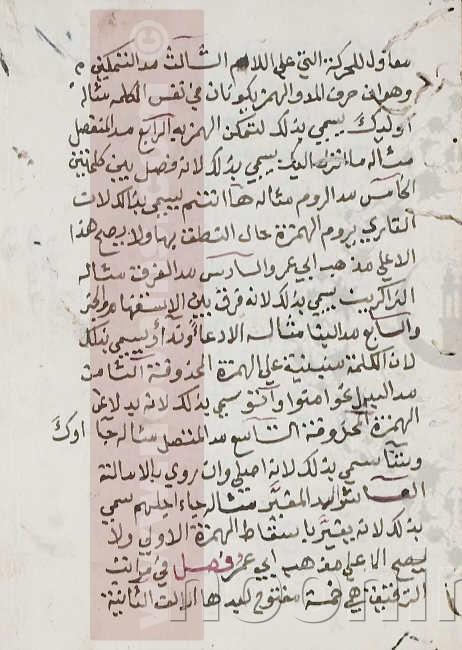 معاول للحركة التي على اللام الثالث مد التمكين
وهو ان حرف المد والهمز يكونان في نفس الكلمه مثاله
اوليك يسمي بذلك لتمكن الهمز به الرابع مد المنفصل
مثاله ما انزل اليك يسمي بذلك لانه فصل بين كلمتين
الخامس مد الروم مثاله ها انتم يسمي بذلك لان
القاري يروم الهمزة حال النطق بها ولا يصح هذا
الا علي مذهب ابي عمر والسادس مد الفرق مثاله
الذاكرين يسمي بذلك لانه فرق بين الاستفهام والخبر
والسابع مد البنا مثاله الادعا وندا ويسمي بذلك
لان الكلمة مبنية علي الهمزة المحذوفة الثامن
مد البدل نحو امنوا واتو سمي بذلك لانه بدلا عن
الهمزة المحذوفة التاسع مد المتصل مثاله جا اوك
وبننا سمي بذلك لانه اصلي وان روي بالامالة
العاشر المد المغير مثاله جاء اجلهم سمي
بذلك لانه يغير باسقاط الهمزة الاولي ولا
يصح الا علي مذهب ابي عمر فصل في مراتب
الترخيف وهي خمسة مفتوح لبعدها الالف الثانية